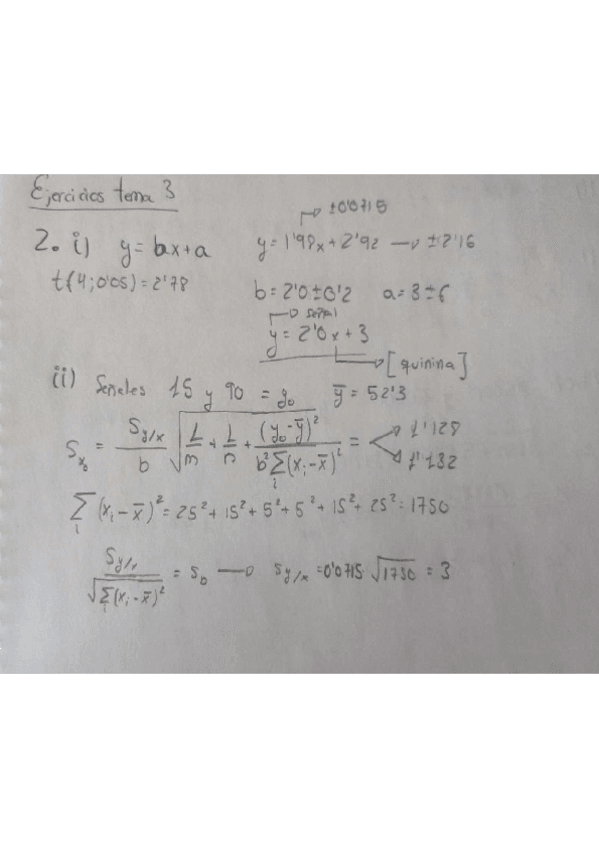 Ejercicios tema 3
±0'0715
2. i) y = bx+a y = 1'98x + 2'92 → ±2'16
t(4;0'05) = 2'78
b = 2'0 ± 0'2 a = 3 ± 6
señal
y = 2'0x + 3
[quinina]
ii) Señales 15 y 90 = y₀ ȳ = 52'3
S_x₀ = S_y/x / b √(1/m + 1/n + (y₀-ȳ)² / b² Σ_i (x_i-x̄)²) = 1'128
1'132
Σ_i (x_i-x̄)² = 25² + 15² + 5² + 5² + 15² + 25² = 1750
S_y/x / √Σ(x_i-x̄)² = S_b → S_y/x = 0'0715 √1750 = 3